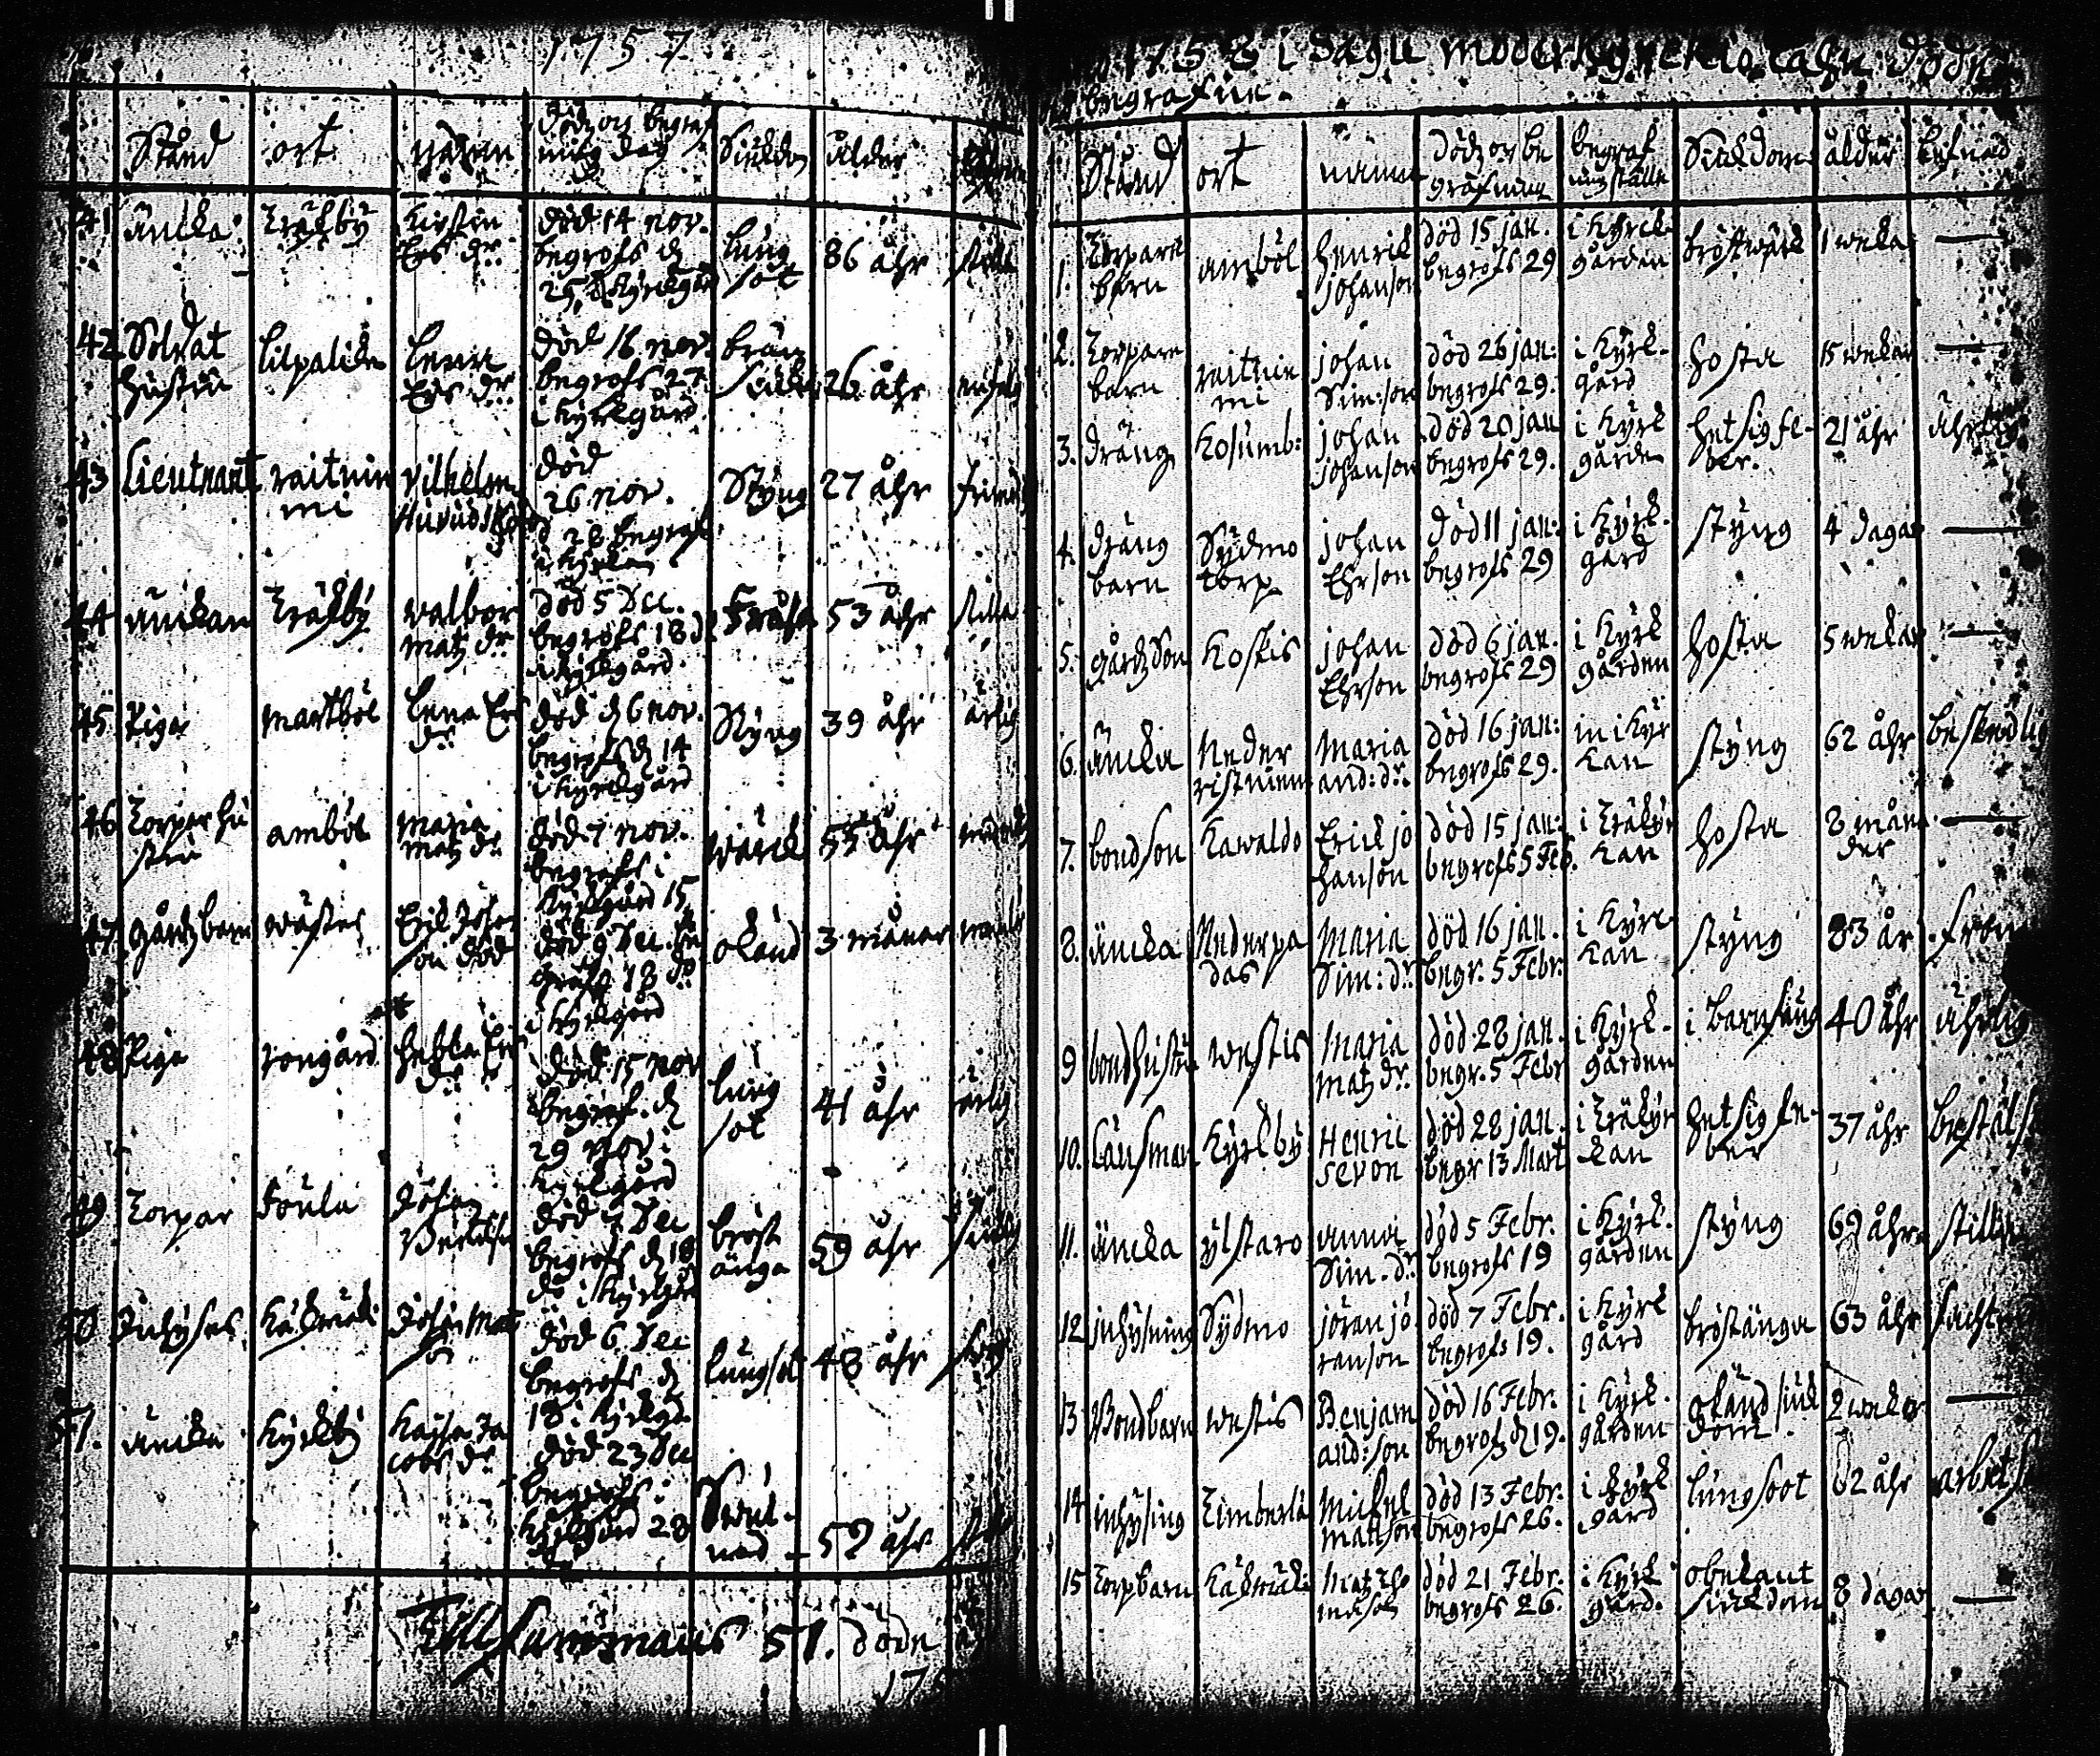 1757
Stånd ort namn Död och begraf
ning dag Siukdom ålder
41 änka Träskby Kirstin
Ers dr. död 14 nov.
begrofs d
25, i kyrkgård lung
sot 86 åhr stilla
42 Soldat
hustru Lilpalido Lena
Ers dr. död 16 nov.
begrofs 27
i kyrkgård brän
siuk 26 åhr
43 Lieutnant raitnie
mi Vilhelm död
26 nov.
d 28 begrof
i kyrkan Styng 27 åhr
44 änkan Träskby valbor
matz dr. död 5 Dec.
begrofs 18 d
i kyrkgård Fråssa 53 åhr stilla
45 Piga martböl Lena Ers
dr. död d 6 nov.
begrofs d 14
i kyrkgård Styng 39 åhr ärlig
46 Torpar hu
stru amböl maria
matz dr. död 7 nov.
begrofs i
kyrkgård 15 wärk 55 åhr
47 gårdz barn wästes Erik Johan
son död död 9 Dec.
18 do
i kyrkgård okänd 3 månar
48 Piga rongård Hebla Ers
dr. död 15 nov
begraf. d
29 nov i
kyrkgård lung
sot 41 åhr ärlig
49 Torpar Johan död 7 Dec
begrofs d 18
do i kyrkgård bröst
ånga 59 åhr
50 Inhyses Johan Mats
son död 6 Dec
begrofs d
18 i kyrkgd. lungsot 48 åhr
51. änka Kyrkby Kajsa Ja
cobs dr. död 23 Dec
begrofs i
kyrkgård 28 Swul
nad 52 åhr
Tillsammans 51. döde
1758 i Sagu moderkyrckio dödde
begrafne.
Stånd ort namn Död och be
grafning begraf
ningställe Siukdom ålder lefnad
1. Torpare
barn amböl Henrik
Johanson död 15 jan.
begrofs 29 i kyrck
gården bröstwärk 1 weka —
2. Torpare
barn raitnie
mi johan
Sim:son död 26 jan:
begrofs 29. i kyrk-
gård hosta 15 wekar —
3. dräng Kosumb: johan
johanson död 20 jan
begrofs 29. i kyrk
gården hetsig fe-
ber. 21 åhr ährlig
4. dräng
barn Sydmo
torp johan
Ehrson död 11 jan:
begrofs 29 i kyrk-
gård styng 4 dagar —
5. gårdz son Koskis johan
Ehrson död 6 jan.
begrofs 29 i kyrk
gården hosta 5 wekar —
6. änka Neder
ristniem Maria
and: dr. död 16 jan:
begrofs 29. in i kyr
kan styng 62 åhr beskedlig
7. bondson Kawaldo Erick jo
hanson död 15 jan:
begrofs 5 Feb. i Träkyr
kan hosta 8 måna
der —
8. änka Nederpa
das Maria
Sim: dr. död 16 jan.
begr. 5 Febr. i kyre
kan styng 83 år. from
9 bondhustru westis Maria
matz dr. död 28 jan.
begr. 5 Febr i kyrk-
gården i barnsäng 40 åhr ährlig
10. Länsman Kyrkby Henric
Sevon död 28 jan.
begr 13 Mart i Träkyr
kan hetsig fe-
ber 37 åhr
11. änka ylstaro anna
Sim. dr. död 5 Febr.
begrofs 19 i kyrk.
gården styng 69 åhr stilla
12 inhysning Sydmo jöran jö
ranson död 7 Febr.
begrofs 19. i kyrk
gård bröstånga 63 åhr
13 Bondbarn westis Benjam
and: son död 16 Febr.
begrofs d 19. i kyrk.
gården okänd siuk
dom. 2 wekor —
14 inhysing Timberla Michel
mattson död 13 Febr.
begrofs 26. i kyrk
gård lungsoot 62 åhr
15 Torpbarn Matz Tho
mason död 21 Febr.
begrofs 26. i kyrk
gård. obekant
siukdom 8 dagar —